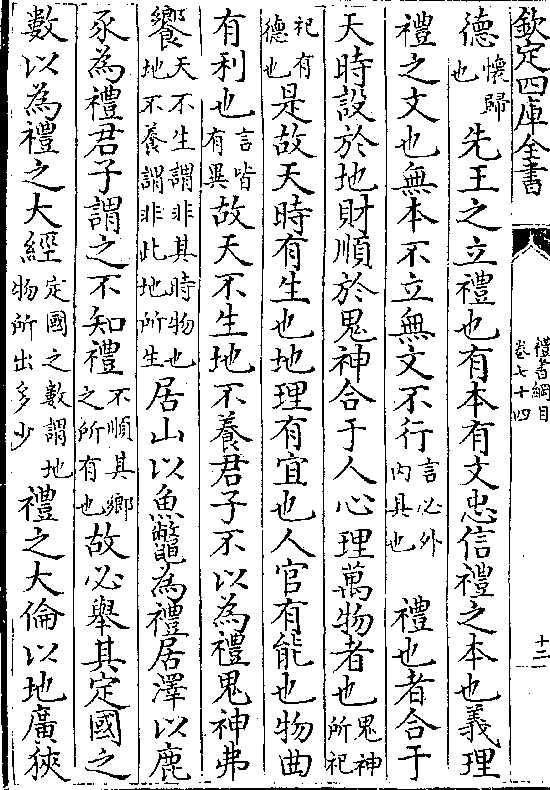 欽定四庫全書
禮書綱目
卷七十四
十二
德懷歸也先王之立禮也有本有文忠信禮之本也義理
禮之文也無本不立無文不行言必外內具也禮也者合于
天時設於地財順於鬼神合于人心理萬物者也鬼神所祀
祀有德也是故天時有生也地理有宜也人官有能也物曲
有利也言皆有異故天不生地不養君子不以為禮鬼神弗
饗天不生謂非其時物也地不養謂非此地所生居山以魚鼈為禮居澤以鹿
豕為禮君子謂之不知禮不順其鄉之所有也故必舉其定國之
數以為禮之大經定國之數謂地物所出多少禮之大倫以地廣狹